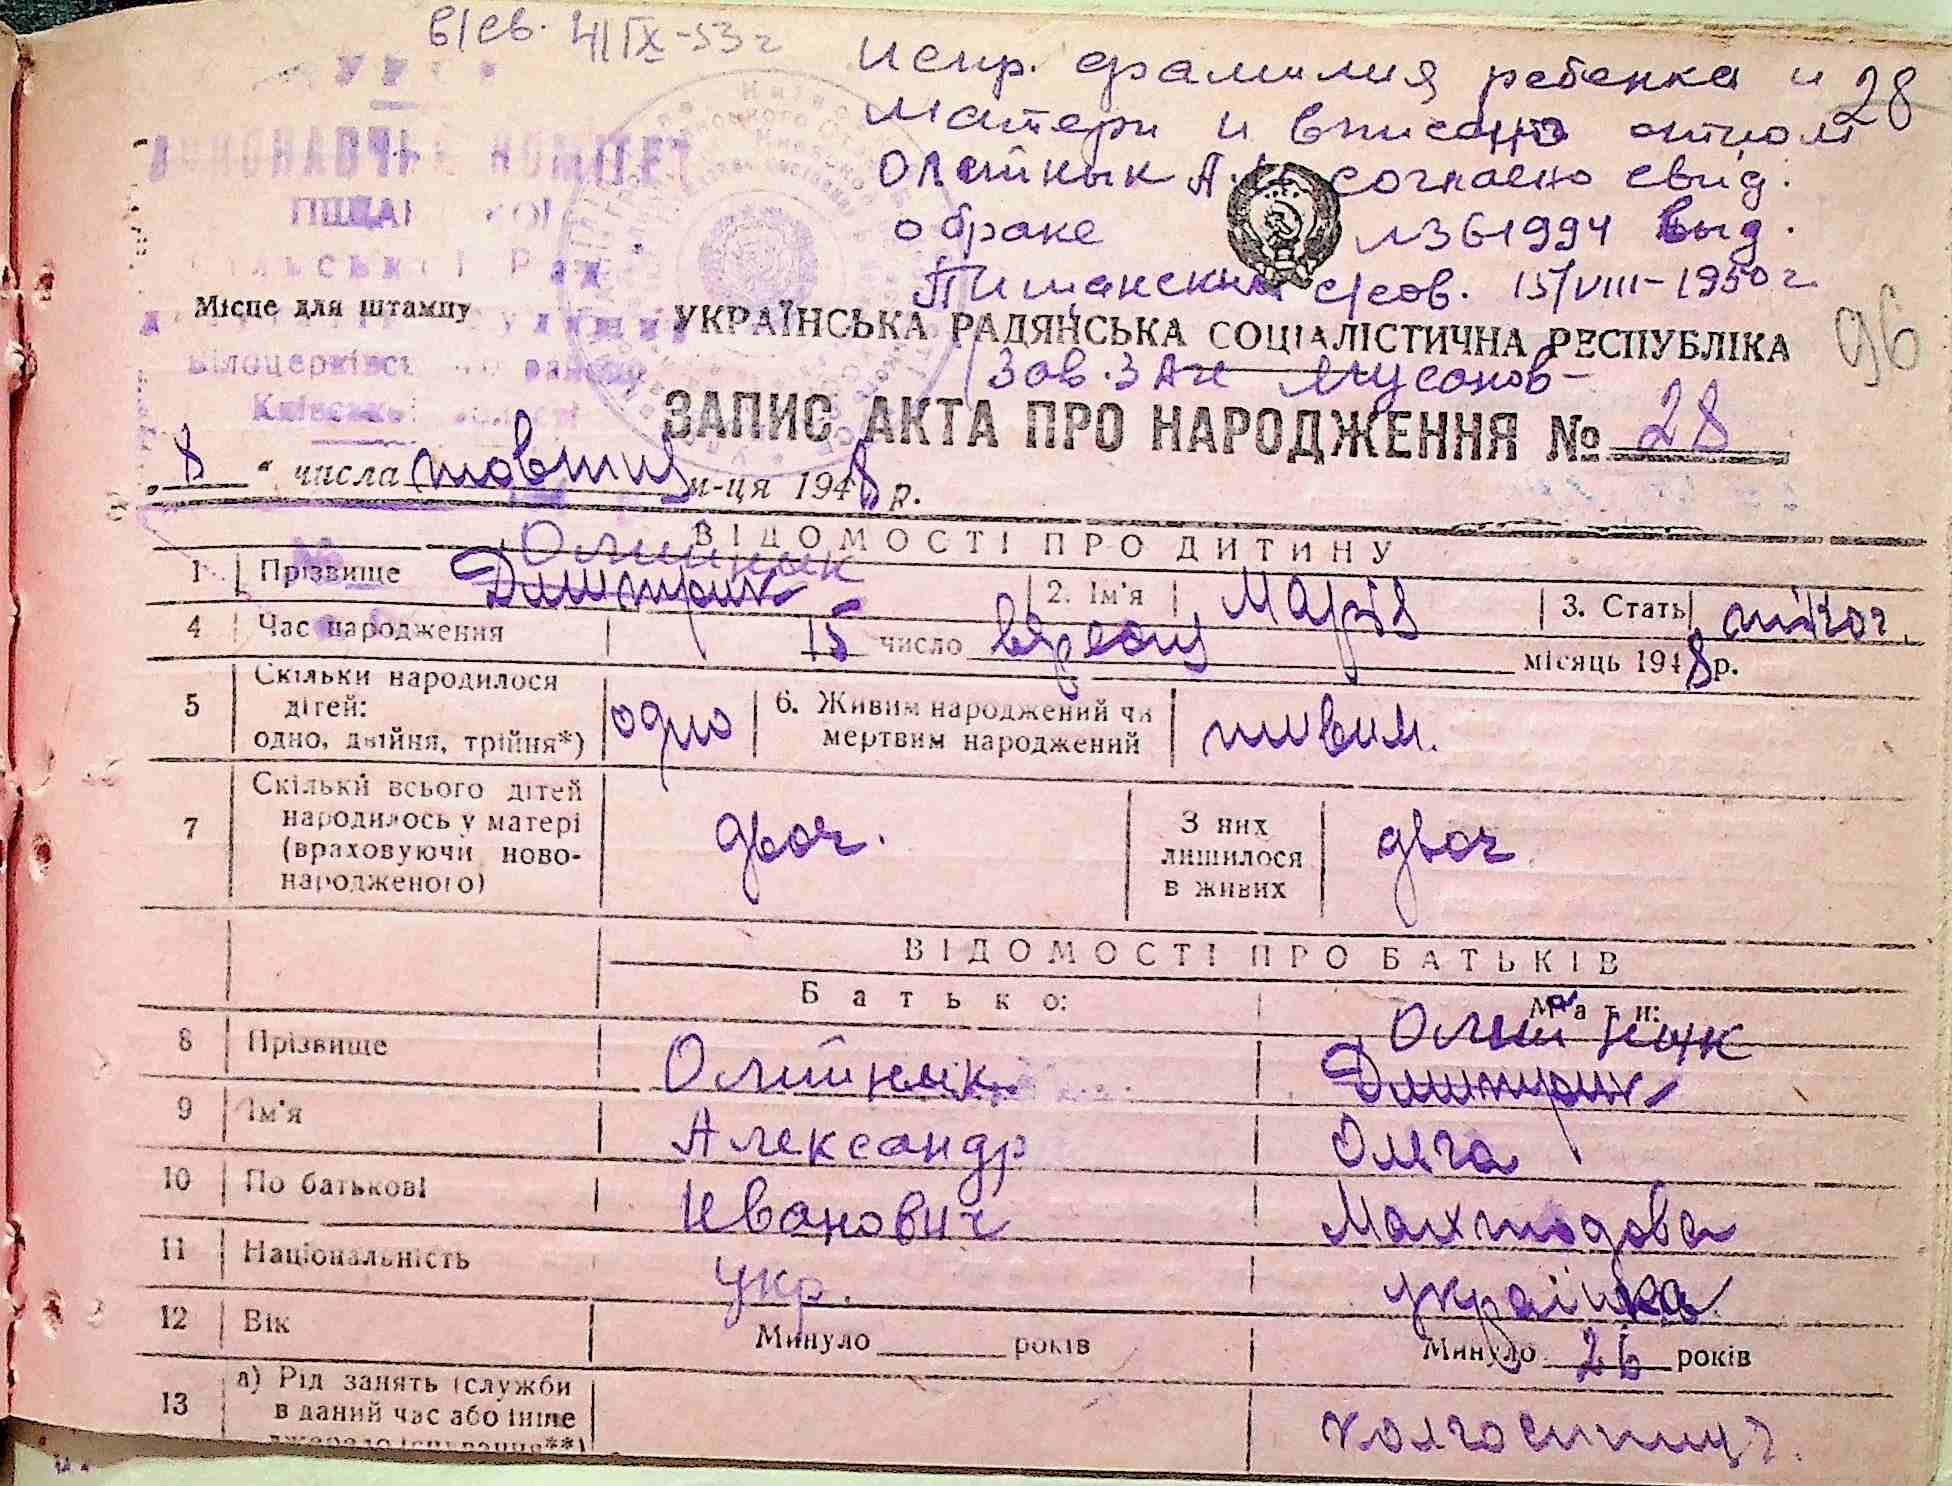 в/св. 4/IX-53 г
испр. фамилия ребенка и
28
матери и вписано отцом
Олейнык А.И. согласно свид.
о браке № 361994 выд.
Пищанским с/сов. 15/VIII-1950 г.
Зав. ЗАГС
96
УРСР
ВИКОНАВЧИЙ КОМІТЕТ
ПІЩАНСЬКОЇ
Сільської Ради
Білоцерківського району
Київської області
Місце для штампу
УКРАЇНСЬКА РАДЯНСЬКА СОЦІАЛІСТИЧНА РЕСПУБЛІКА
ЗАПИС АКТА ПРО НАРОДЖЕННЯ № 28
„8“ числа жовтня м-ця 1948 р.
ВІДОМОСТІ ПРО ДИТИНУ
Олийнык
1 Прізвище Дмитрик 2. Ім'я Марія 3. Стать жіноч.
4 Час народження 15 число вересня місяць 1948 р.
5 Скільки народилося дітей: одно, двійня, трійня*) одно 6. Живим народжений чи мертвим народжений живим.
7 Скільки всього дітей народилось у матері (враховуючи новонародженого) двоє. З них лишилося в живих двоє
ВІДОМОСТІ ПРО БАТЬКІВ
Батько: Мати:
Олийнык
8 Прізвище Олийнык Дмитрик
9 Ім'я Александр Ольга
10 По батькові Иванович
11 Національність укр. українка
12 Вік Минуло ____ років Минуло 26 років
13 а) Рід занять (служби в даний час або інше джерело існування**) колгоспниця.